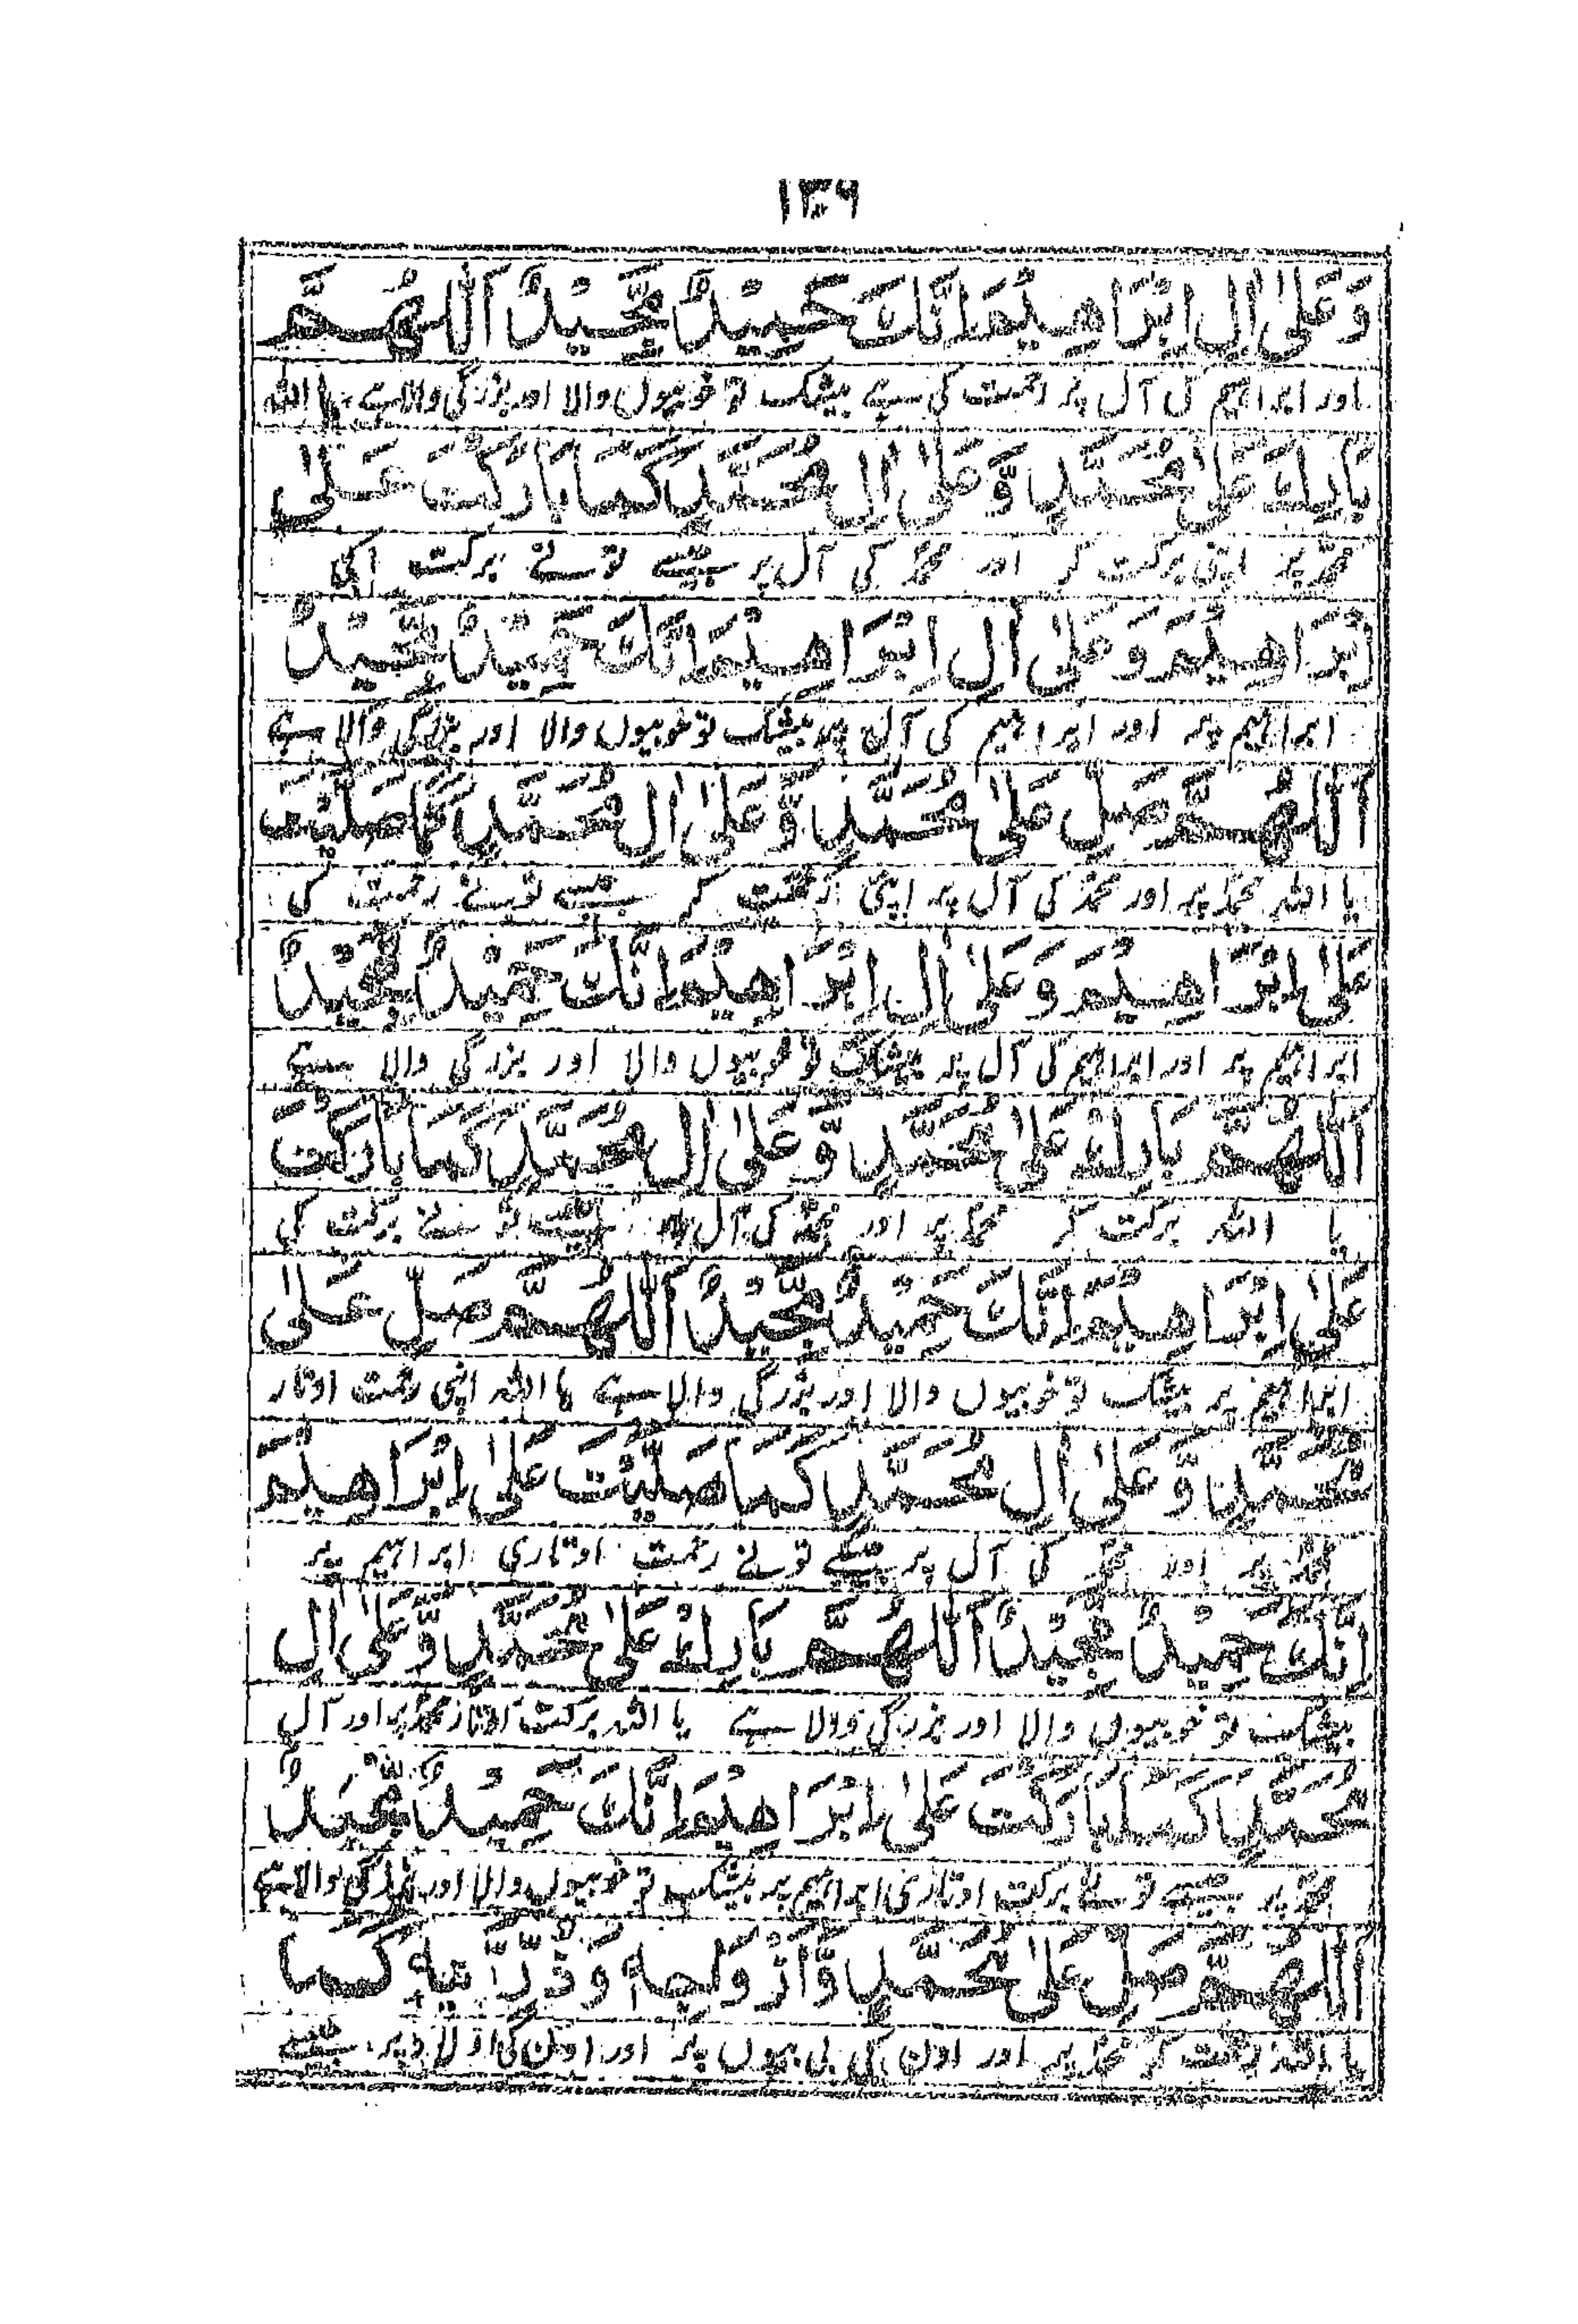 ۱۳۶
وَعَلٰى اٰلِ اِبْرَاهِيْمَ اِنَّكَ حَمِيْدٌ مَّجِيْدٌ اَللّٰهُمَّ
اور ابراہیم کی آل پر رحمت کی ہے بیشک تو خوبیوں والا اور بزرگی والا ہے یا اللہ
بَارِكْ عَلٰى مُحَمَّدٍ وَّعَلٰى اٰلِ مُحَمَّدٍ كَمَا بَارَكْتَ عَلٰى
محمدؐ پر اپنی برکت کر اور محمدؐ کی آل پر جیسے تو نے برکت کی
اِبْرَاهِيْمَ وَعَلٰى اٰلِ اِبْرَاهِيْمَ اِنَّكَ حَمِيْدٌ مَّجِيْدٌ
ابراہیم پر اور ابراہیم کی آل پر بیشک تو خوبیوں والا اور بزرگی والا ہے
اَللّٰهُمَّ صَلِّ عَلٰى مُحَمَّدٍ وَّعَلٰى اٰلِ مُحَمَّدٍ كَمَا صَلَّيْتَ
یا اللہ محمدؐ پر اور محمدؐ کی آل پر اپنی رحمت کر جیسے تو نے رحمت کی
عَلٰى اِبْرَاهِيْمَ وَعَلٰى اٰلِ اِبْرَاهِيْمَ اِنَّكَ حَمِيْدٌ مَّجِيْدٌ
ابراہیم پر اور ابراہیم کی آل پر بیشک تو خوبیوں والا اور بزرگی والا ہے
اَللّٰهُمَّ بَارِكْ عَلٰى مُحَمَّدٍ وَّعَلٰى اٰلِ مُحَمَّدٍ كَمَا بَارَكْتَ
یا اللہ برکت کر محمدؐ پر اور محمدؐ کی آل پر جیسے تو نے برکت کی
عَلٰى اِبْرَاهِيْمَ اِنَّكَ حَمِيْدٌ مَّجِيْدٌ اَللّٰهُمَّ صَلِّ عَلٰى
ابراہیم پر بیشک تو خوبیوں والا اور بزرگی والا ہے یا اللہ اپنی رحمت اوتار
مُحَمَّدٍ وَّعَلٰى اٰلِ مُحَمَّدٍ كَمَا صَلَّيْتَ عَلٰى اِبْرَاهِيْمَ
محمدؐ پر اور محمدؐ کی آل پر جیسے تو نے رحمت اوتاری ابراہیم پر
اِنَّكَ حَمِيْدٌ مَّجِيْدٌ اَللّٰهُمَّ بَارِكْ عَلٰى مُحَمَّدٍ وَّعَلٰى اٰلِ
بیشک تو خوبیوں والا اور بزرگی والا ہے یا اللہ برکت اوتار محمدؐ پر اور آل
مُحَمَّدٍ كَمَا بَارَكْتَ عَلٰى اِبْرَاهِيْمَ اِنَّكَ حَمِيْدٌ مَّجِيْدٌ
محمدؐ پر جیسے تو نے برکت اوتاری ابراہیم پر بیشک تو خوبیوں والا اور بزرگی والا ہے
اَللّٰهُمَّ صَلِّ عَلٰى مُحَمَّدٍ وَّاَزْوَاجِهٖ وَذُرِّيَّتِهٖ كَمَا
یا اللہ رحمت کر محمدؐ پر اور اون کی بی بیوں پر اور اون کی اولاد پر جیسے